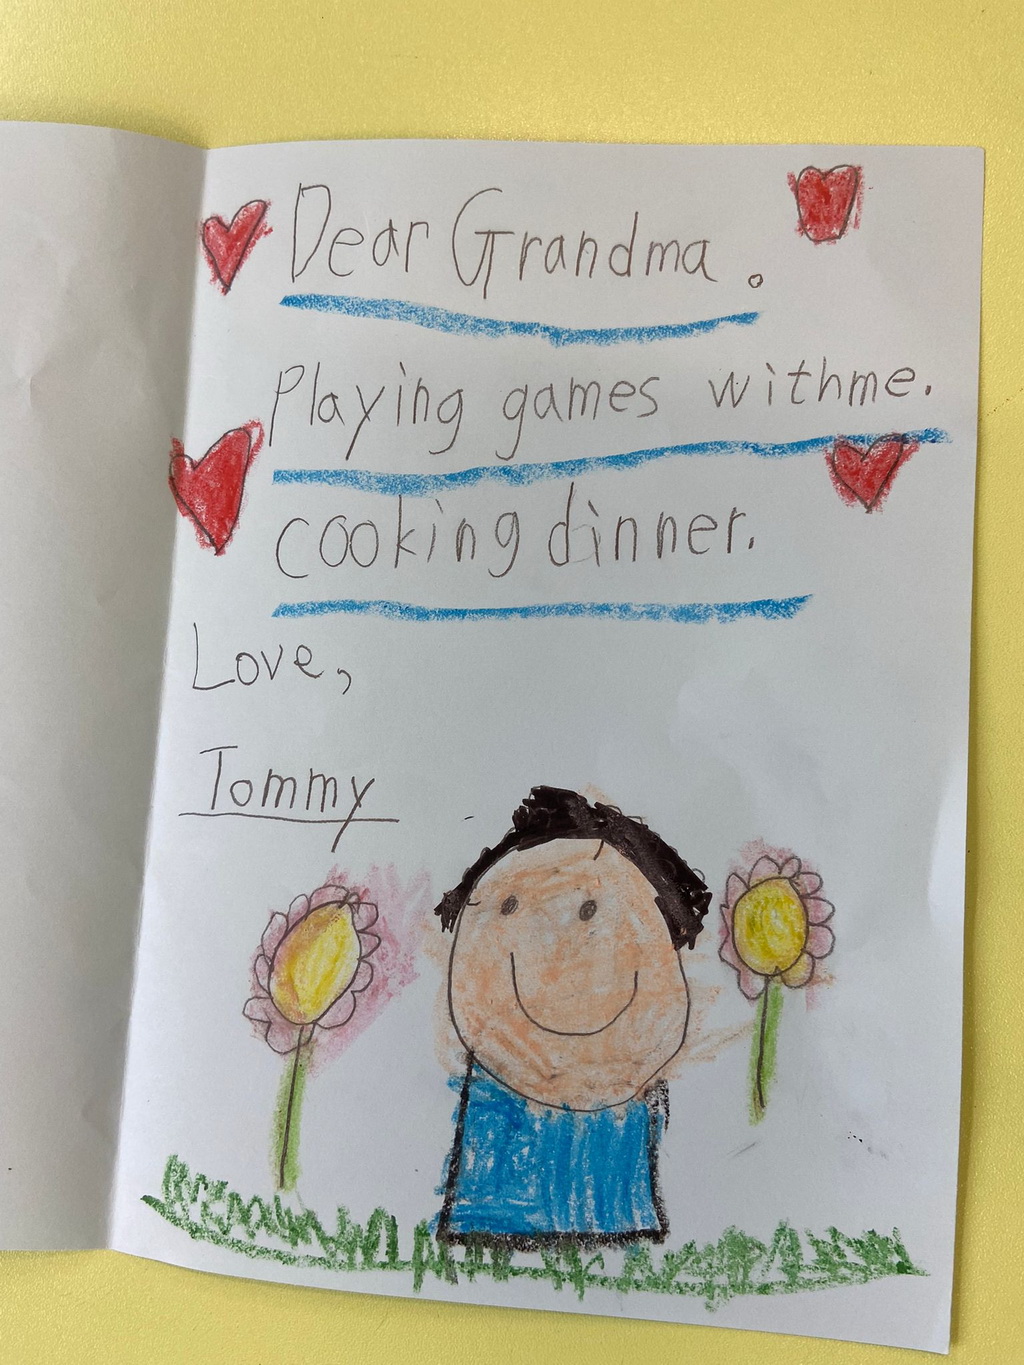 Dear Grandma.
Playing games withme.
cooking dinner.
Love,
Tommy